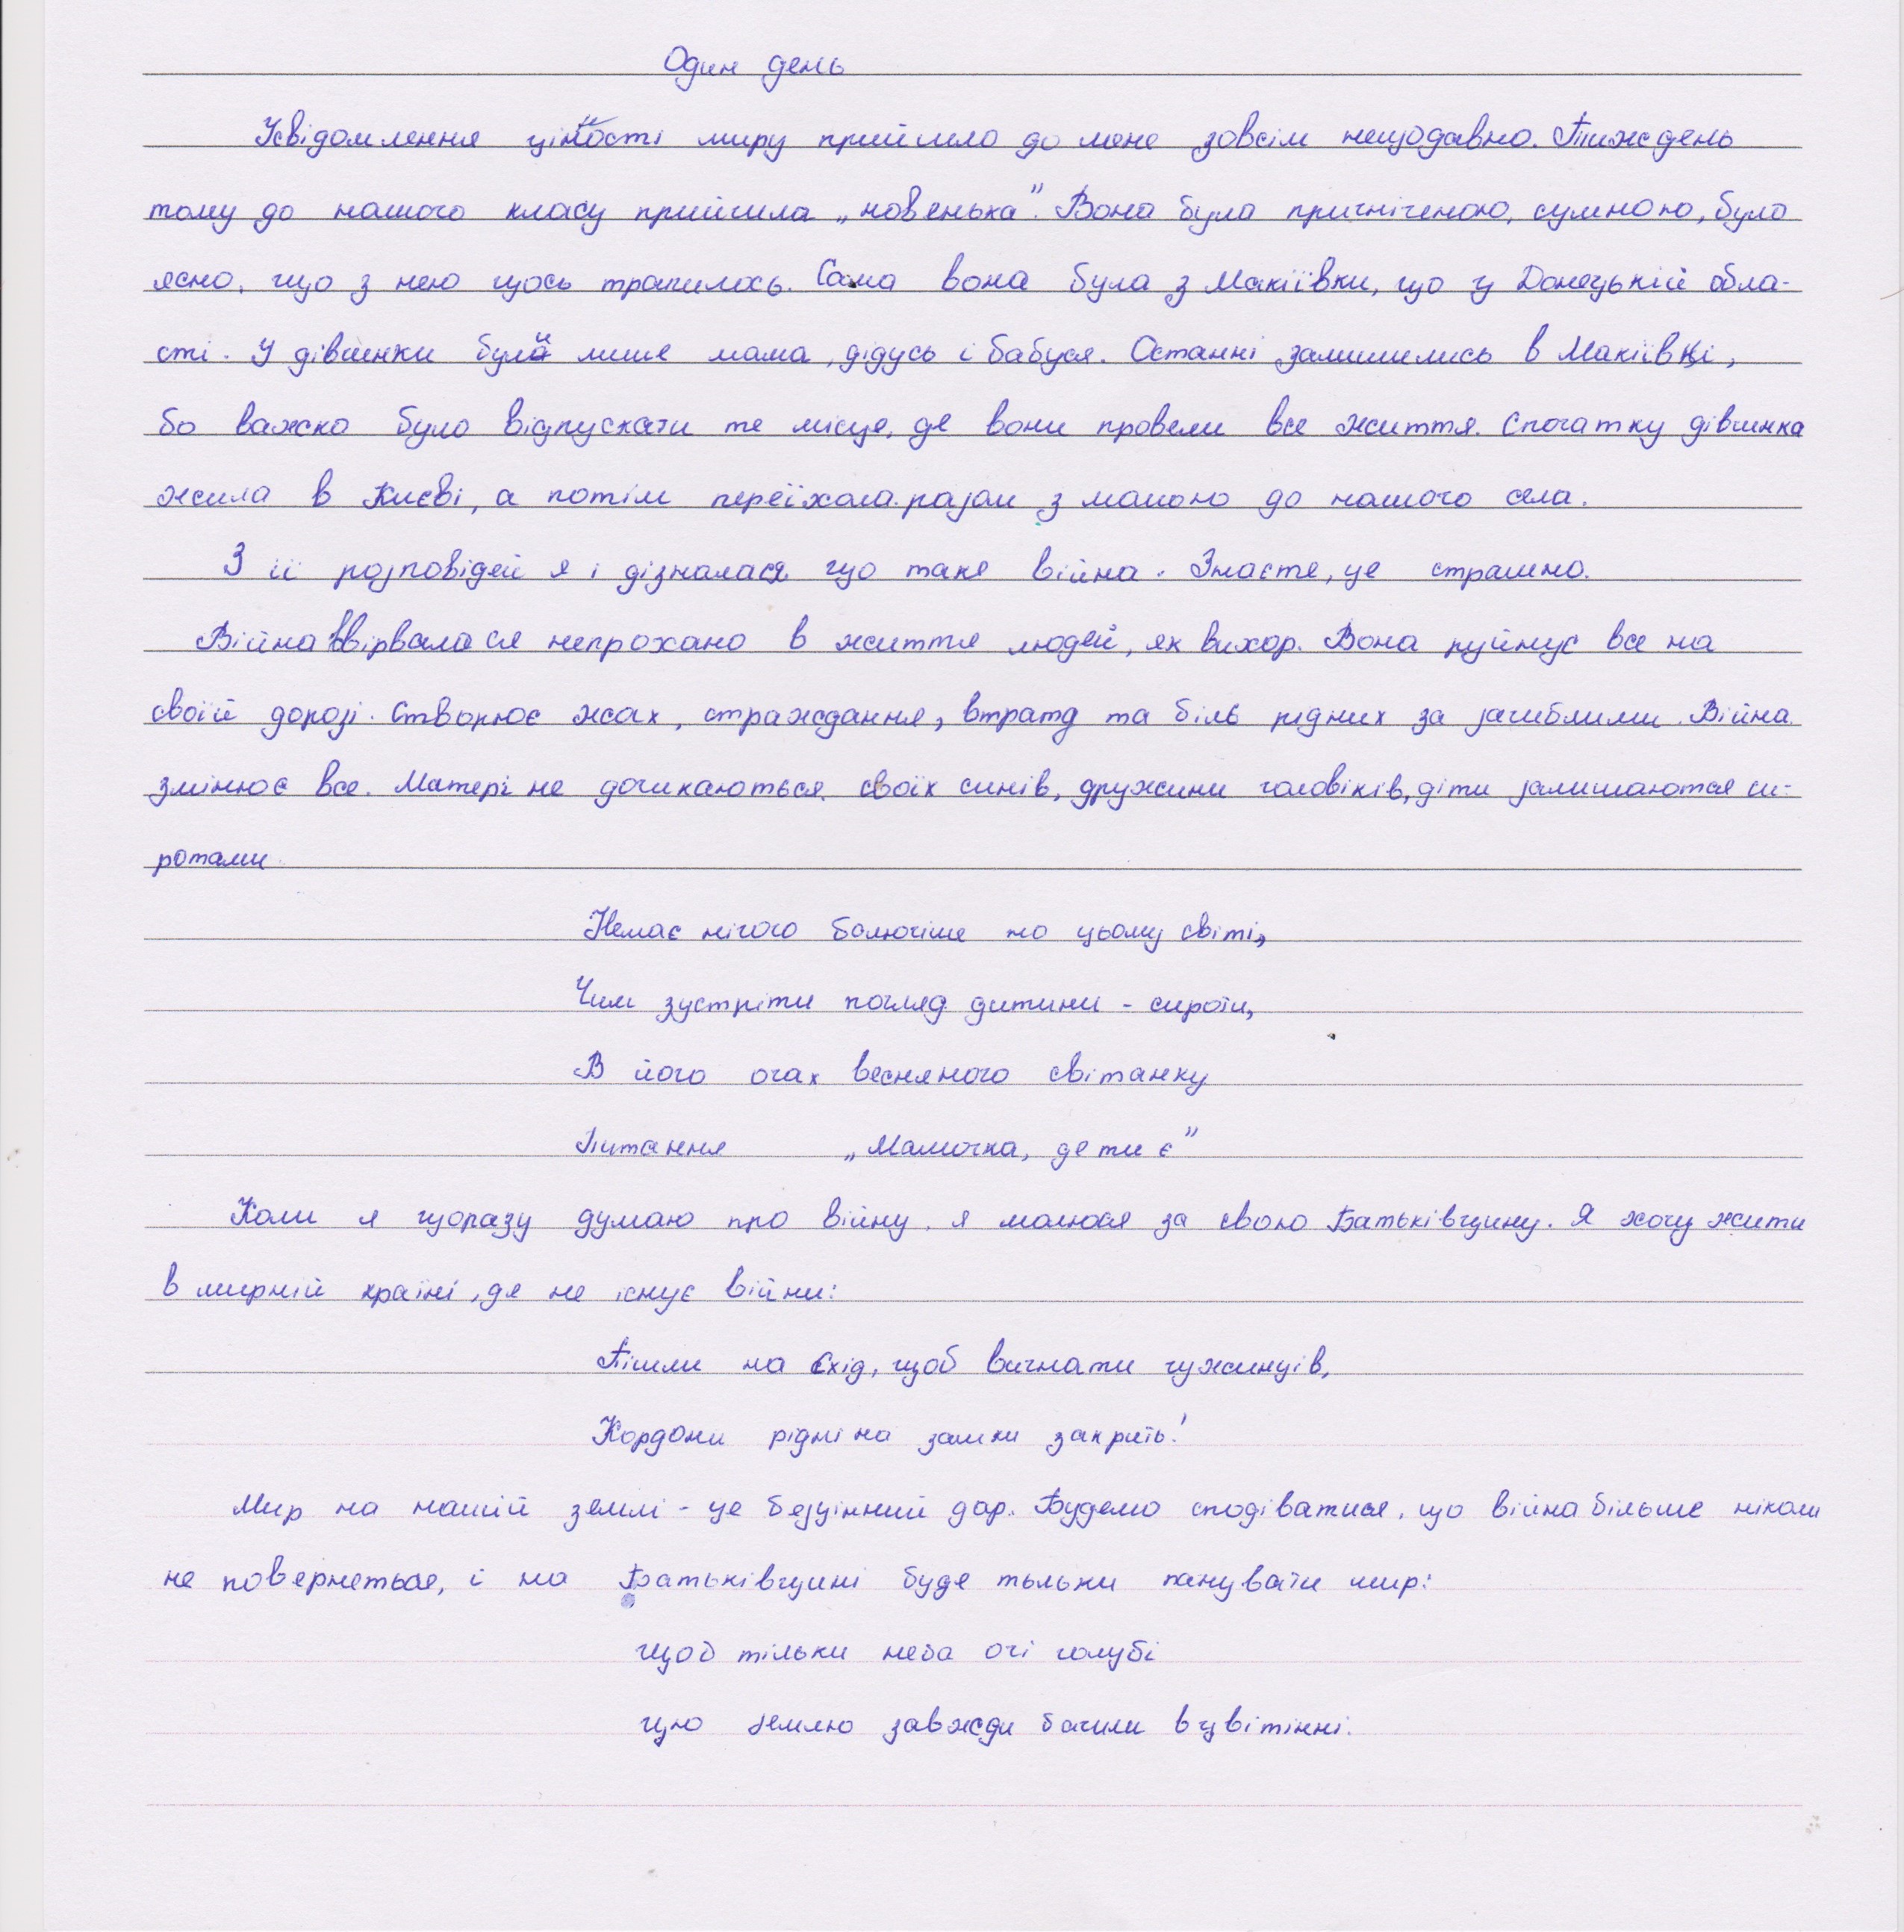 Один день
Усвідомлення цінності миру прийшло до мене зовсім нещодавно. Тиждень
тому до нашого класу прийшла „новенька". Вона була пригніченою, сумною, було
ясно, що з нею щось трапилось. Сама вона була з Макіївки, що у Донецькій обла-
сті. У дівчинки були лише мама, дідусь і бабуся. Останні залишились в Макіївці,
бо важко було відпускати те місце, де вони провели все життя. Спочатку дівчинка
жила в Києві, а потім переїхала разом з мамою до нашого села.
З її розповідей я і дізналася що таке війна. Знаєте, це страшно.
Війна ввірвалася непрохано в життя людей, як вихор. Вона руйнує все на
своїй дорозі. Створює жах, страждання, втрату та біль рідних за загиблими. Війна
змінює все. Матері не дочикаються своїх синів, дружини чоловіків, діти залишаются си-
ротами
Немає нічого болючіше на цьому світі,
Чим зустріти погляд дитини - сироти,
В його очах весняного світанку
Питання „Мамочка, де ти є"
Коли я щоразу думаю про війну, я молюся за свою Батьківщину. Я хочу жити
в мирній країні, де не існує війни:
Пішли на Схід, щоб вигнати чужинців,
Кордони рідні на замки закрить!
Мир на нашій землі - це безцінний дар. Будемо сподіватися, що війна більше ніколи
не повернеться, і на Батьківщині буде тільки панувати мир:
щоб тільки неба очі голубі
цю землю завжди бачили в цвітінні.